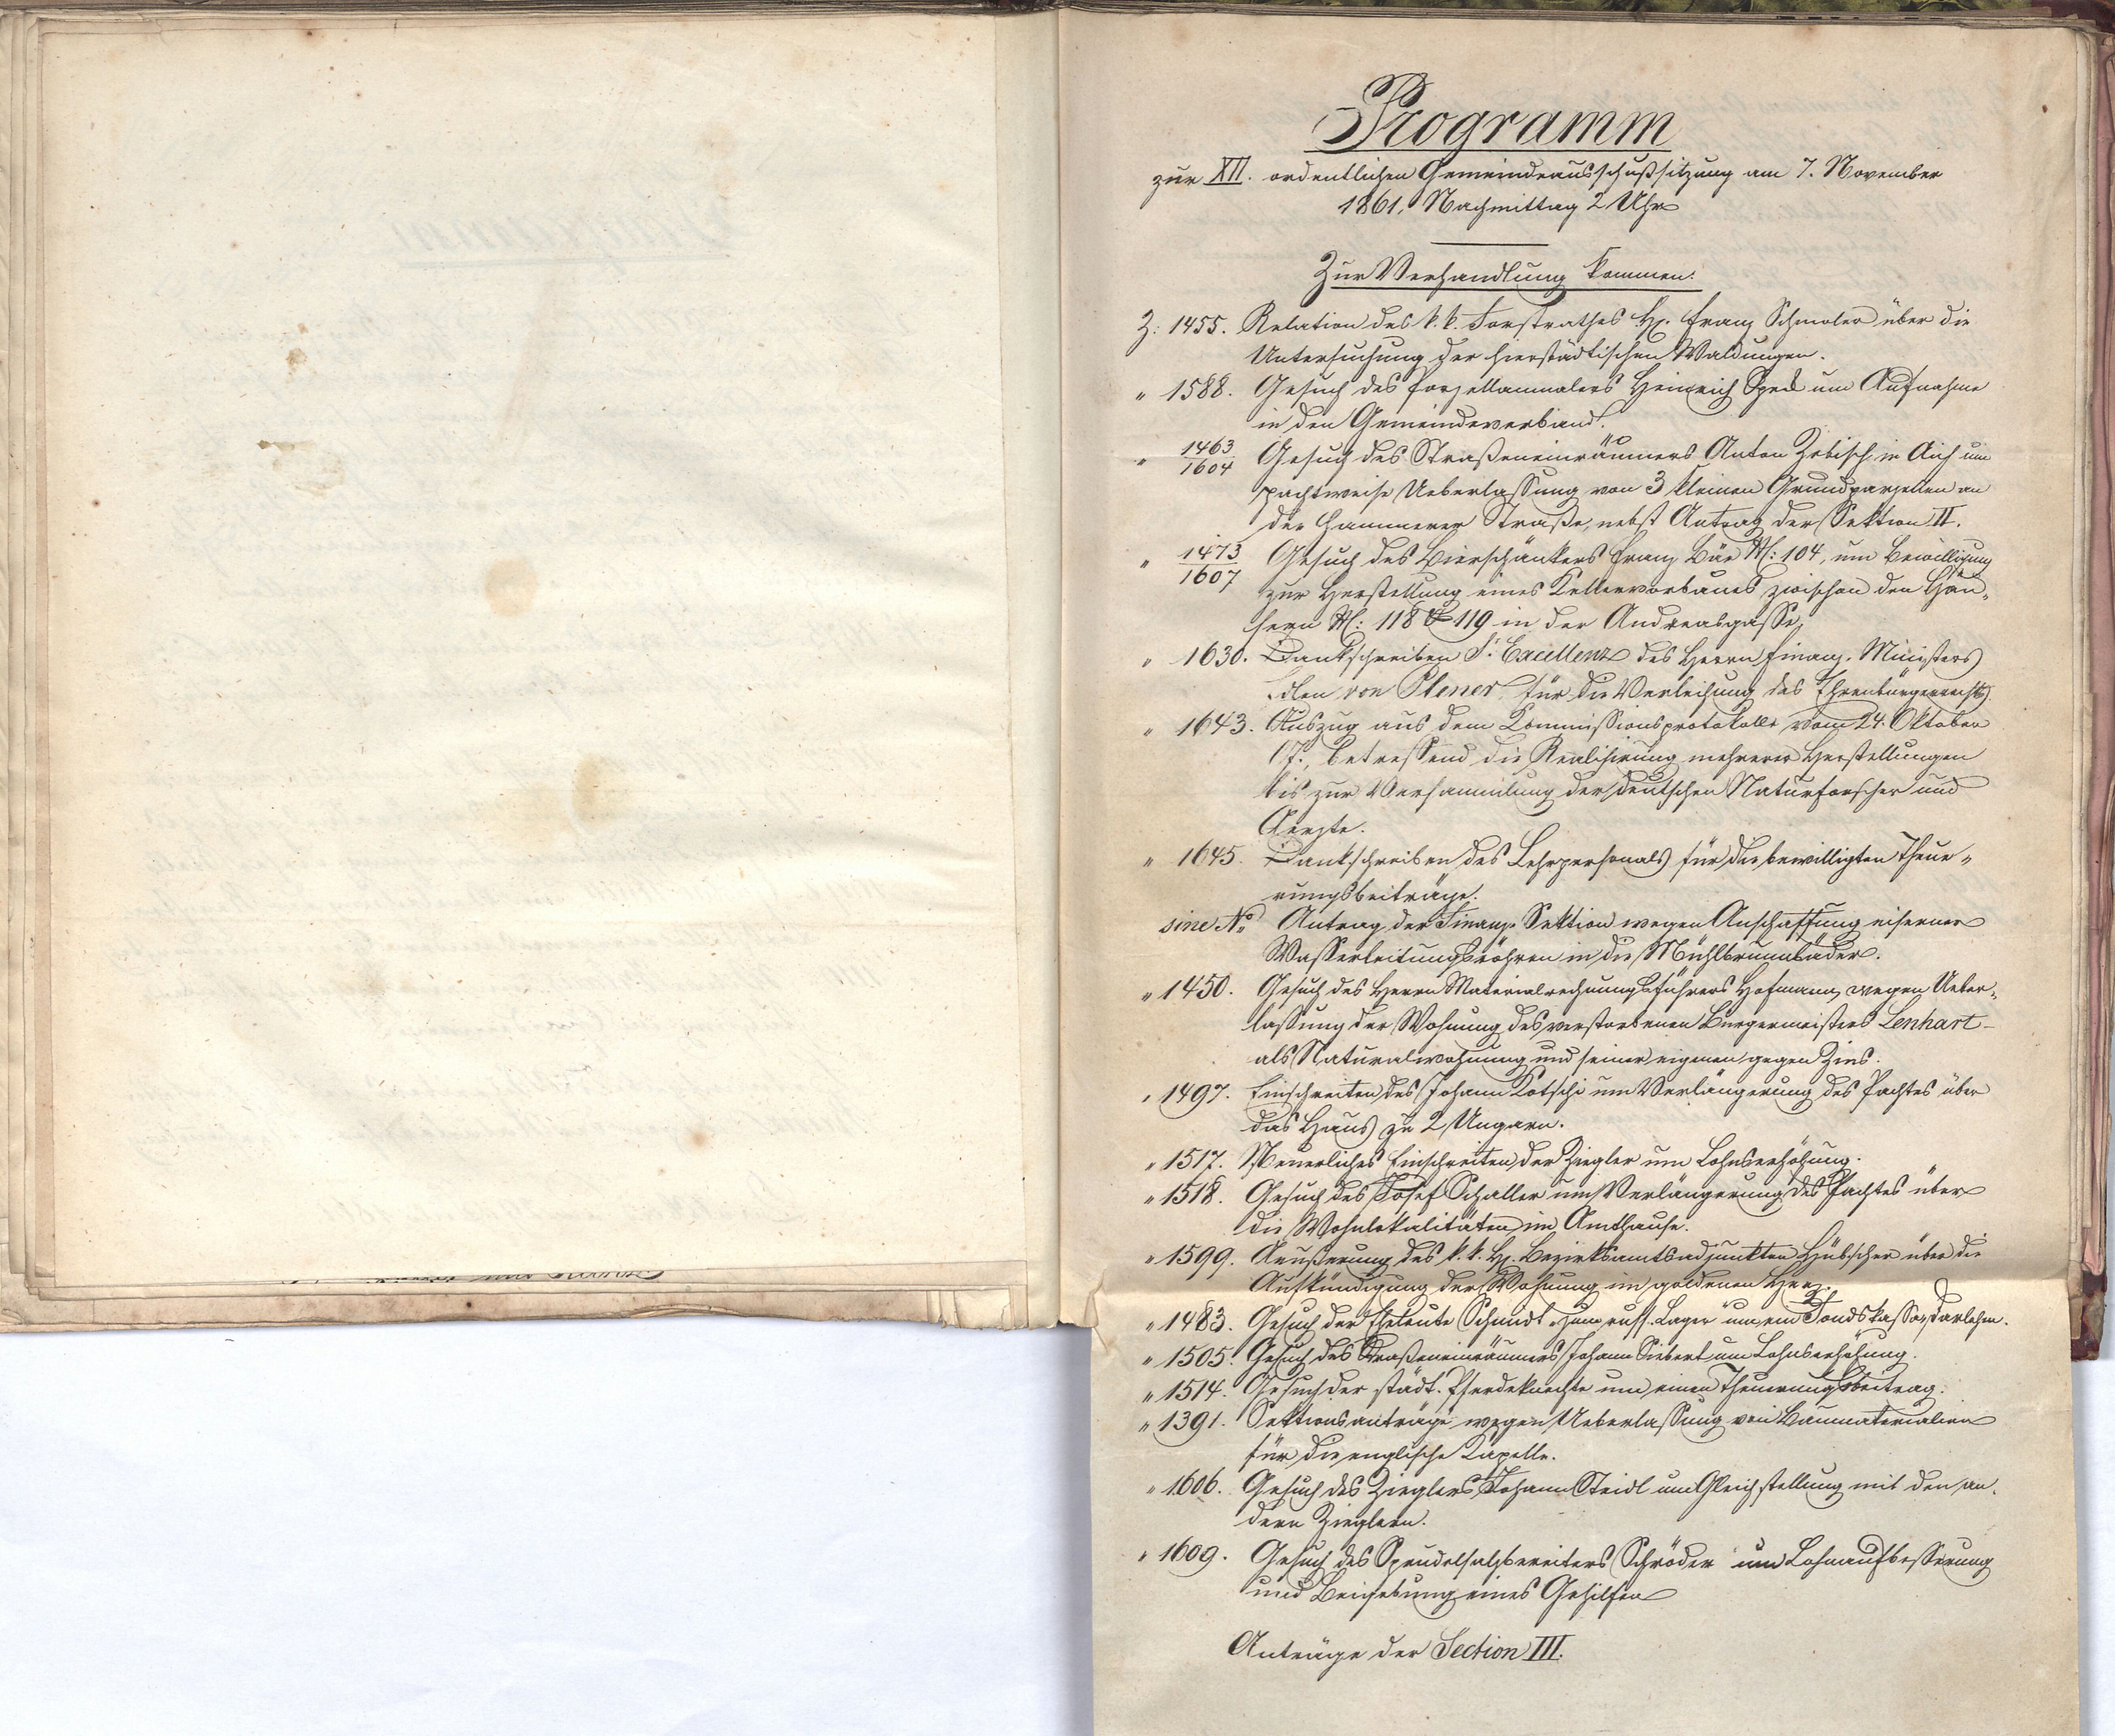 Programm
zur XII. ordentlichen Gemeindeausschußsitzung am 7. November
1861, Nachmittag 2 Uhr
Zur Verhandlung kommen:
Z: 1455. Relation des k.k. Forstrathes H. Franz Schmoler über die
Untersuchung der hierstädtischen Waldungen.
" 1588. Gesuch des Porzellanmalers Heinrich Speck um Aufnahme
in den Gemeindeverband.
" 1463/1604 Gesuch des Straßeneinräumers Anton Zebisch in Aich um
pachtweise Ueberlassung von 3 kleinen Grundparzellen an
der Hammerer Straße, nebst Antrag der Sektion II.
" 1473/1607 Gesuch des Bierschänkers Franz Bär N: 104, um Bewilligung
zur Herstellung eines Kellervorbaues zwischen den Häu-
sern N: 118 & 119 in der Andreasgasse.
" 1630. Dankschreiben Sr Excellenz des Herrn Finanz-Ministers
Edlen von Plener für die Verleihung des Ehrenbürgerrechts.
" 1643. Auszug aus dem Kommissionsprotokolle vom 24. Oktober
l.J., betreffend die Realisirung mehrerer Herstellungen
bis zur Versammlung der deutschen Naturforscher und
Aerzte.
" 1645. Dankschreiben des Lehrpersonals für die bewilligten Theue-
rungsbeiträge.
sine No Antrag der Finanz-Sektion wegen Anschaffung eiserner
Wasserleitungsröhren in die Mühlbrunnbäder.
" 1450. Gesuch des Herrn Materialrechnungsführers Hofmann, wegen Ueber-
lassung der Wohnung des verstorbenen Bürgermeisters Lenhart
als Naturalwohnung und seiner eigenen gegen Zins.
" 1497. Einschreiten des Johann Kotschi um Verlängerung des Pachtes über
das Haus zu 2 Ungarn.
" 1517. Neuerliches Einschreiten der Ziegler um Lohnserhöhung.
" 1518. Gesuch des Josef Schaller um Verlängerung des Pachtes über
die Wohnlokalitäten im Amthause.
" 1599. Aeußerung des k.k. H. Bezirksamtsadjunkten Hübscher über die
Aufkündigung der Wohnung im goldenen Herz.
" 1483. Gesuch der Eheleute Schmidt "zum russ. Lager" um ein Fondskassadarlehen.
" 1505. Gesuch des Straßeneinräumers Johann Siebert um Lohnserhöhung.
" 1514. Gesuch der städt. Pferdeknechte um einen Theuerungsbeitrag.
" 1391. Sektionsanträge wegen Ueberlassung von Baumaterialien
für die englische Kapelle.
" 1606. Gesuch des Zieglers Johann Steidl um Gleichstellung mit den an-
dern Zieglern.
" 1609. Gesuch des Sprudelsalzbereiters Schröder um Lohnaufbesserung
und Beigebung eines Gehilfen
Anträge der Section III.